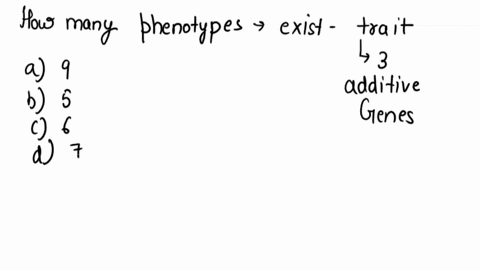 How many phenotypes → exist - trait
↳ 3
additive
Genes
a) 9
b) 5
c) 6
d) 7